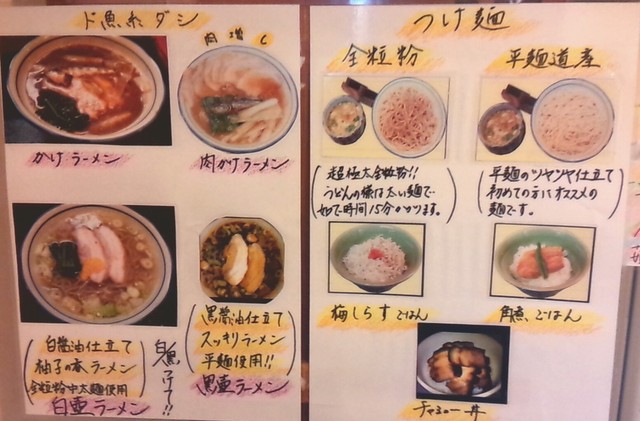 ド魚系ダシ
肉増し
かけラーメン
肉かけラーメン
白醤油仕立て
柚子の香ラーメン
全粒粉中太麺使用
白壷ラーメン
白黒つけて!!
黒醤油仕立て
スッキリラーメン
平麺使用!!
黒壷ラーメン
つけ麺
全粒粉
平麺道産
超極太全粒粉!!
うどんの様な太い麺で…
ゆで時間15分かかります。
平麺のツヤツヤ仕立て
初めての方にオススメの
麺です。
梅しらすごはん
角煮ごはん
チャシュー丼